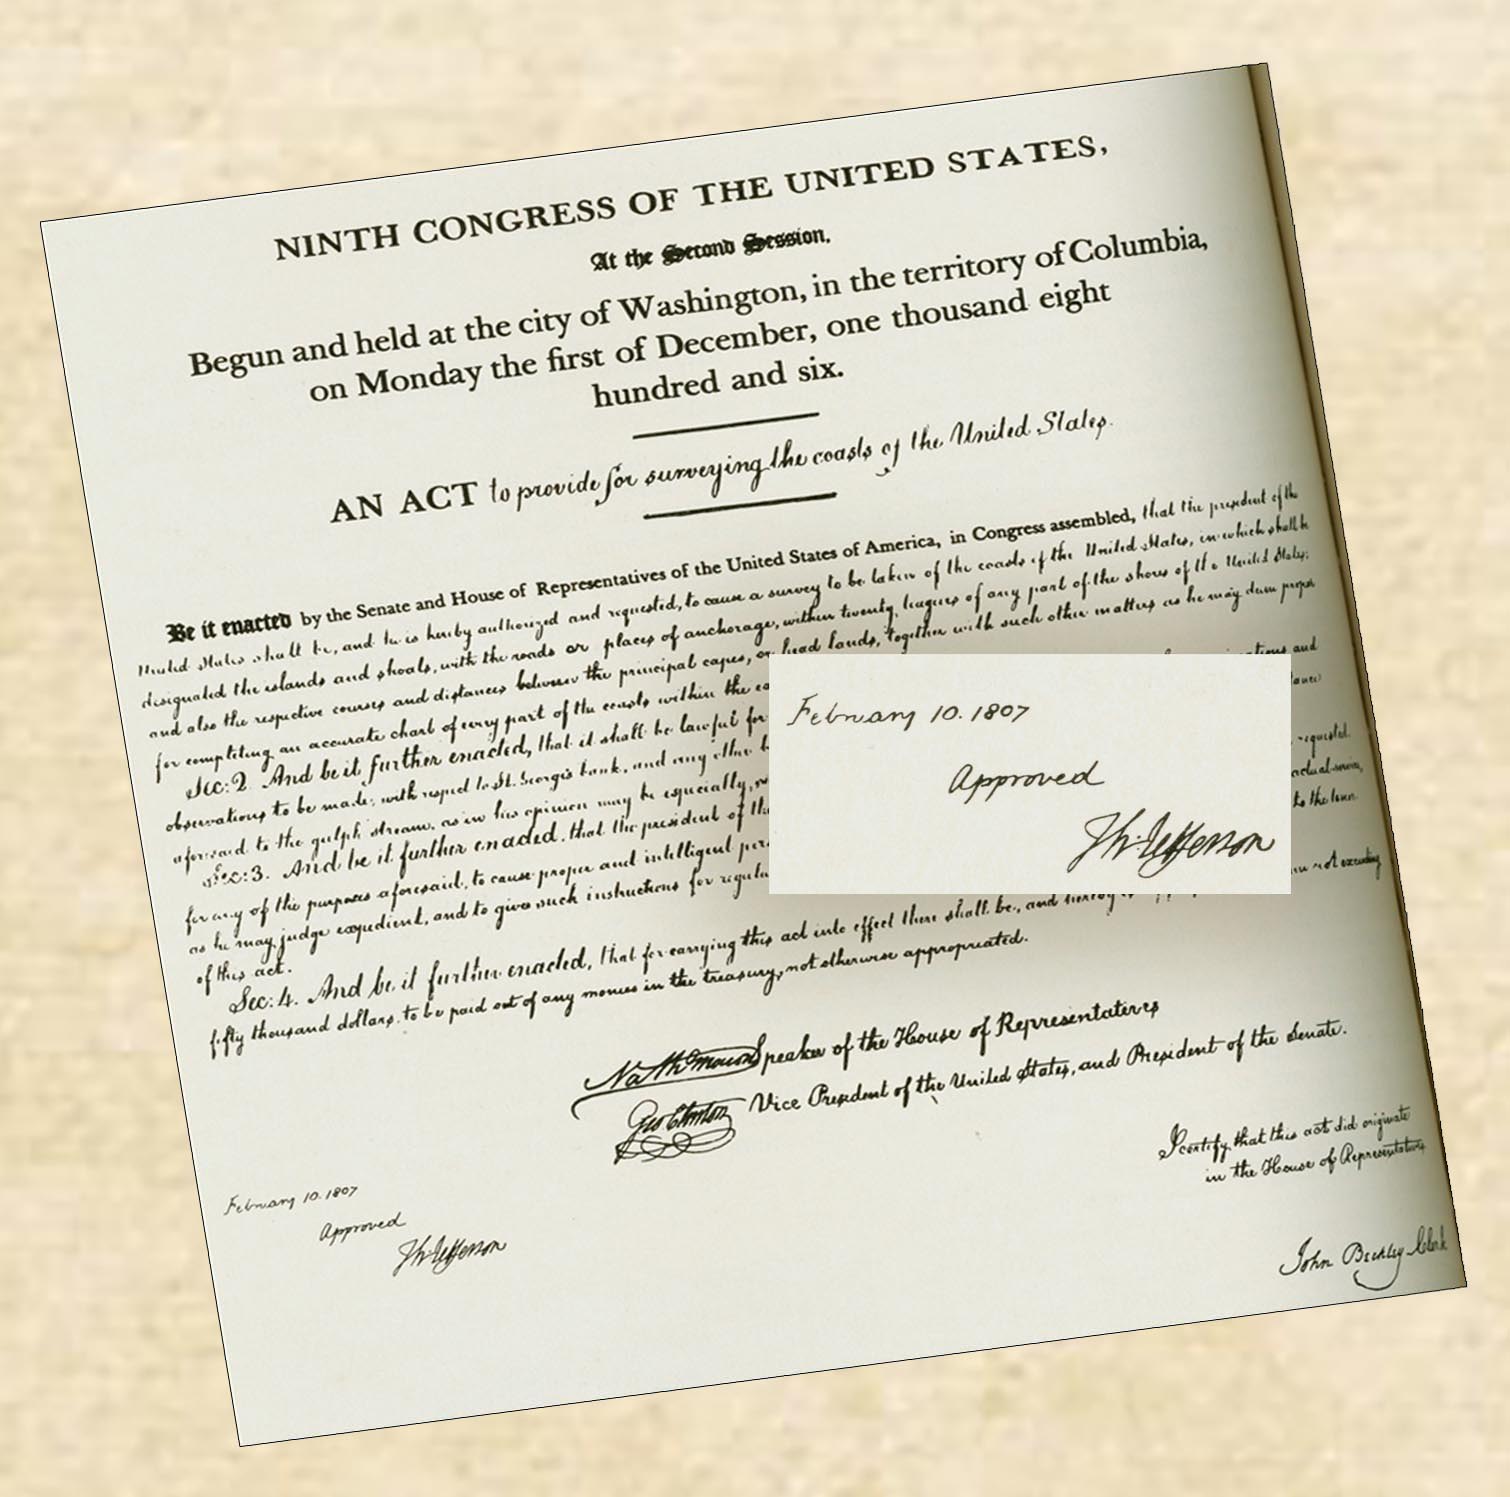 NINTH CONGRESS OF THE UNITED STATES,
At the Second Session,
Begun and held at the city of Washington, in the territory of Columbia,
on Monday the first of December, one thousand eight
hundred and six.
AN ACT to provide for surveying the coasts of the United States.
Be it enacted by the Senate and House of Representatives of the United States of America, in Congress assembled, that the president of the
United States shall be, and he is hereby authorized and requested, to cause a survey to be taken of the coasts of the United States, in which shall be
designated the islands and shoals, with the roads or places of anchorage, within twenty leagues of any part of the shores of the United States;
and also the respective courses and distances between the principal capes, or head lands, together with such other matters as he may deem proper
for completing an accurate chart of every part of the coasts within the
Sec: 2. And be it further enacted, that it shall be lawful for and
observations to be made, with respect to St. George's bank, and any other
aforesaid to the gulph stream, as in his opinion may be especially
Sec: 3. And be it further enacted, that the president of the requested
for any of the purposes aforesaid, to cause proper and intelligent actual service,
as he may judge expedient, and to give such instructions for to the
of this act.
Sec: 4. And be it further enacted, that for carrying this act into effect there shall be, and hereby is not exceeding
fifty thousand dollars, to be paid out of any monies in the treasury, not otherwise appropriated.
Nathl Macon Speaker of the House of Representatives
Geo Clinton Vice President of the United States, and President of the Senate.
I certify that this act did originate
in the House of Representatives
John Beckley Clerk
February 10. 1807
Approved
Th: Jefferson
February 10. 1807
Approved
Th: Jefferson